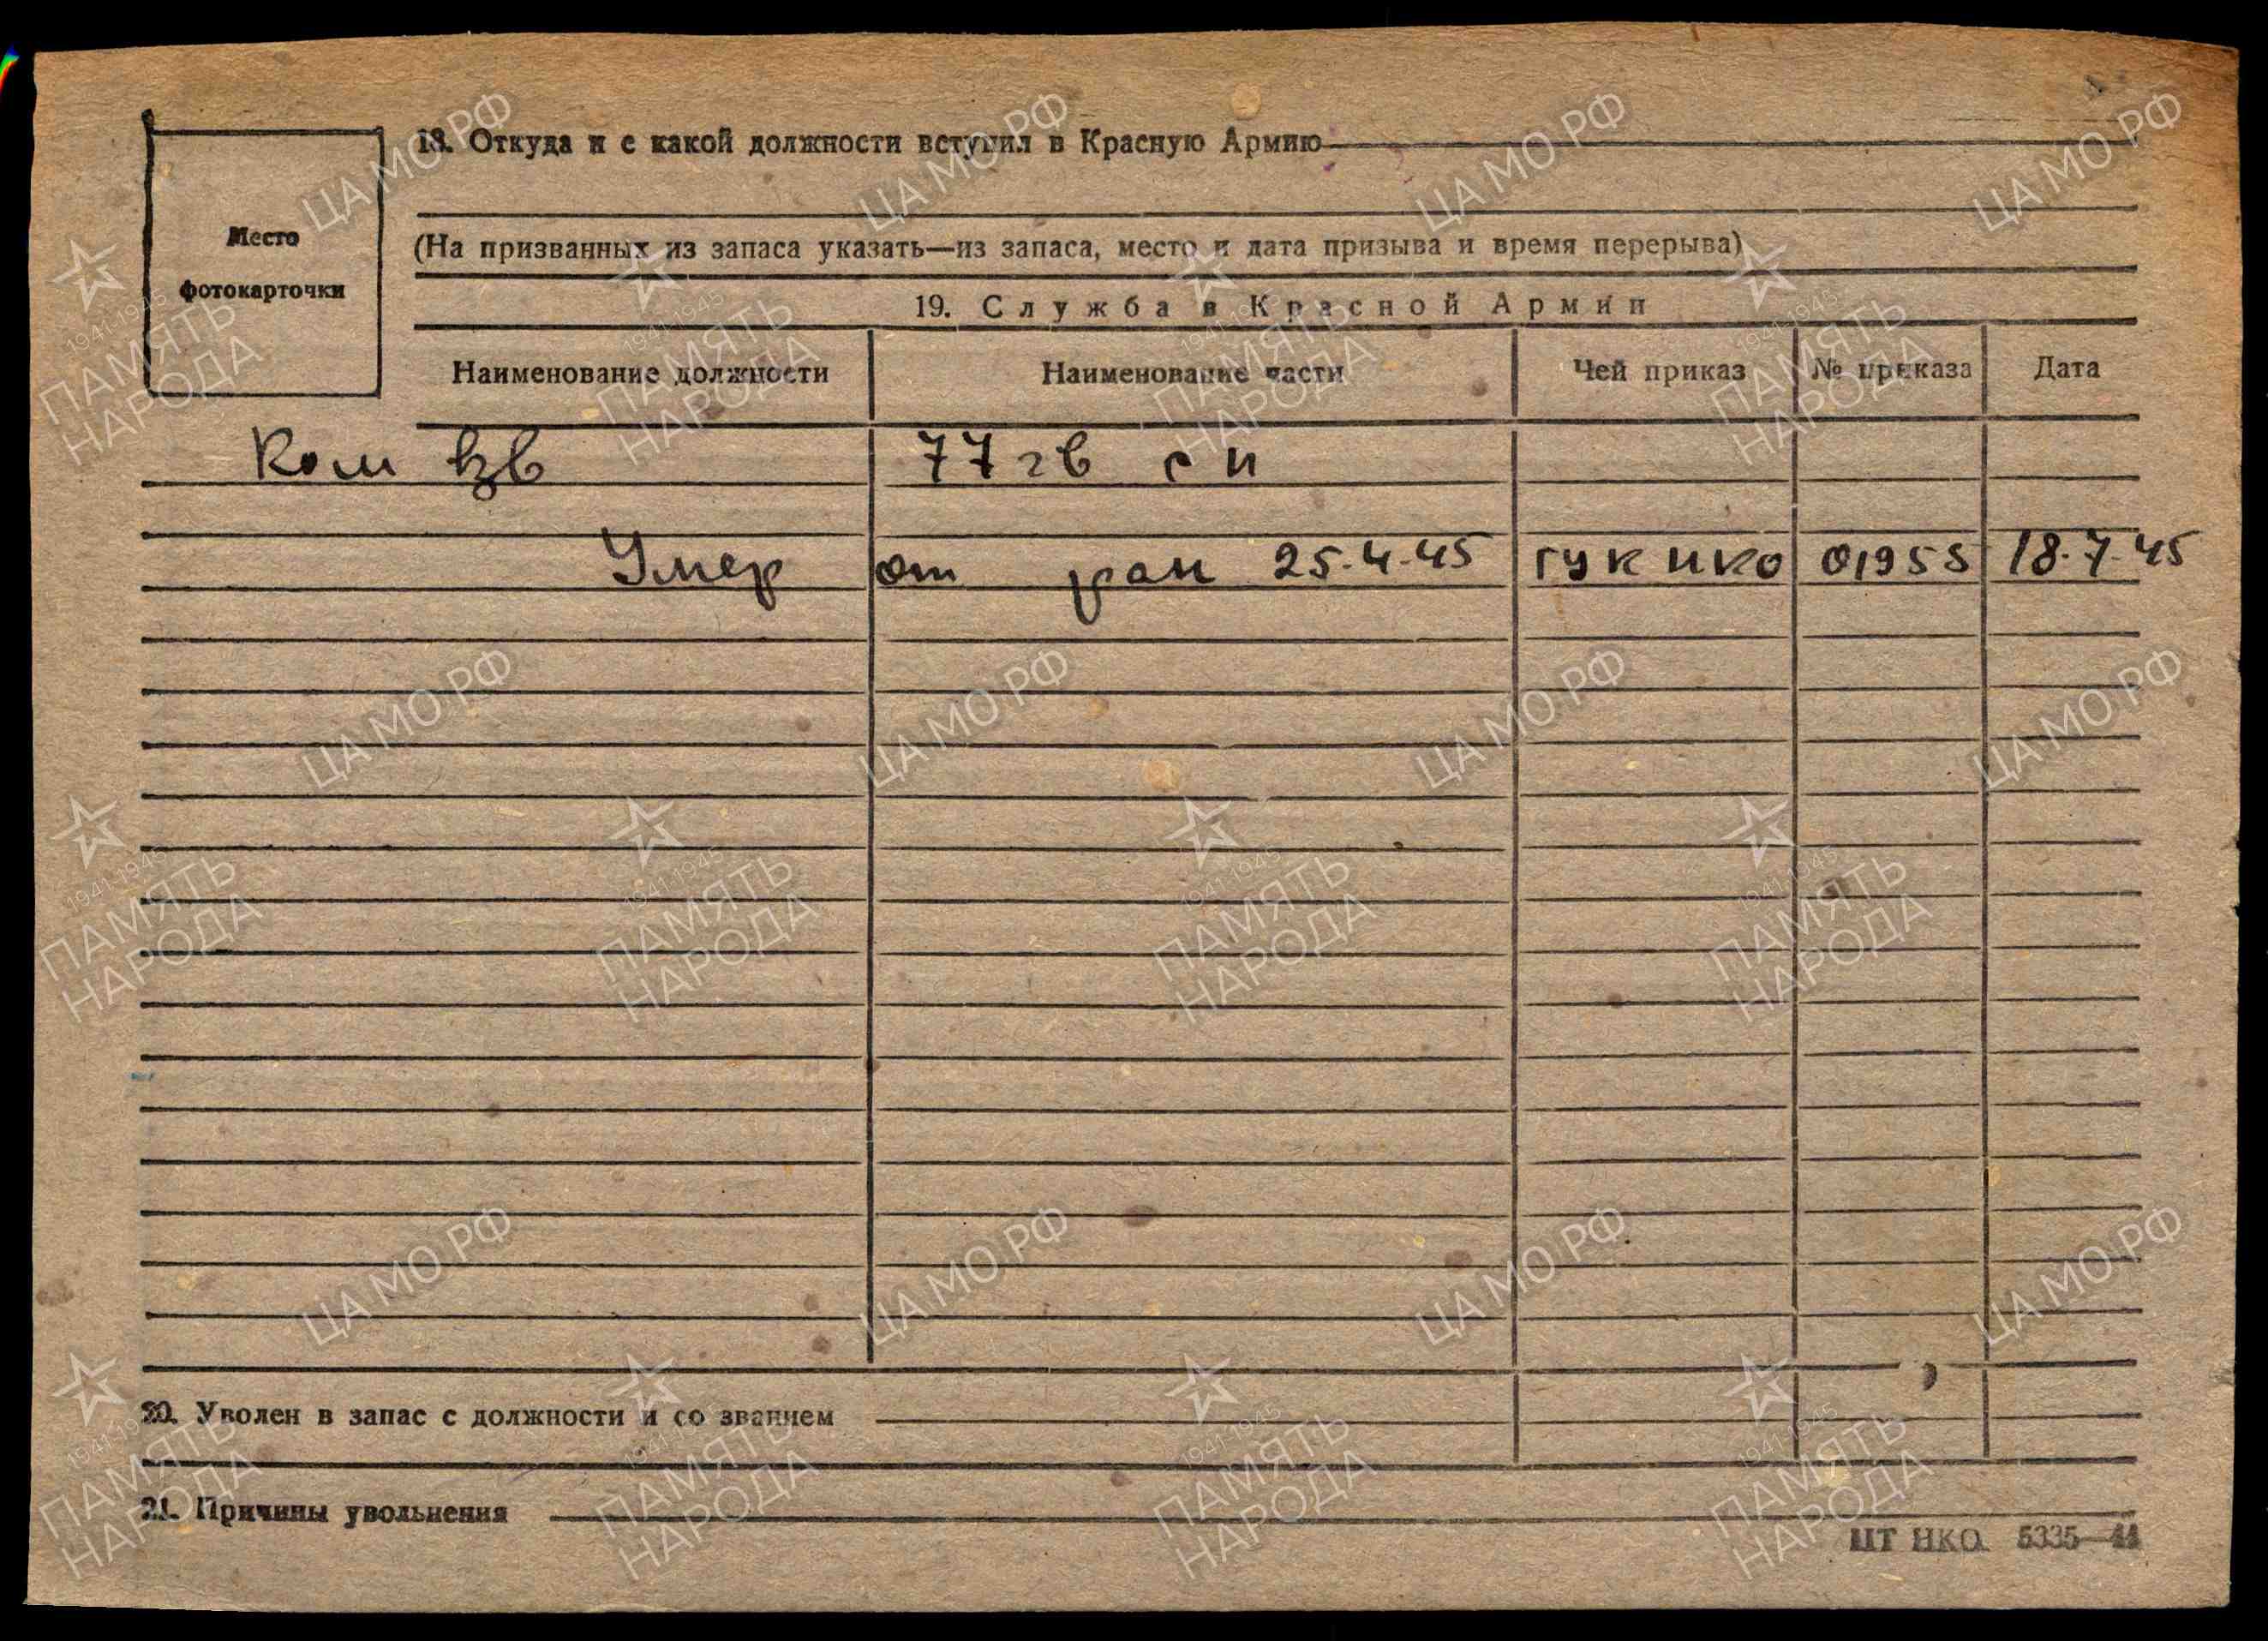 18. Откуда и с какой должности вступил в Красную Армию
Место
фотокарточки
(На призванных из запаса указать—из запаса, место и дата призыва и время перерыва)
19. Служба в Красной Армии
Наименование должности Наименование части Чей приказ № приказа Дата
Ком взв 77 гв сп
Умер от ран 25.4.45 ГУК НКО 01955 18.7.45
20. Уволен в запас с должности и со званием
21. Причины увольнения
ЦТ НКО. 5335—44
ЦА МО РФ
1941-1945
ПАМЯТЬ
НАРОДА